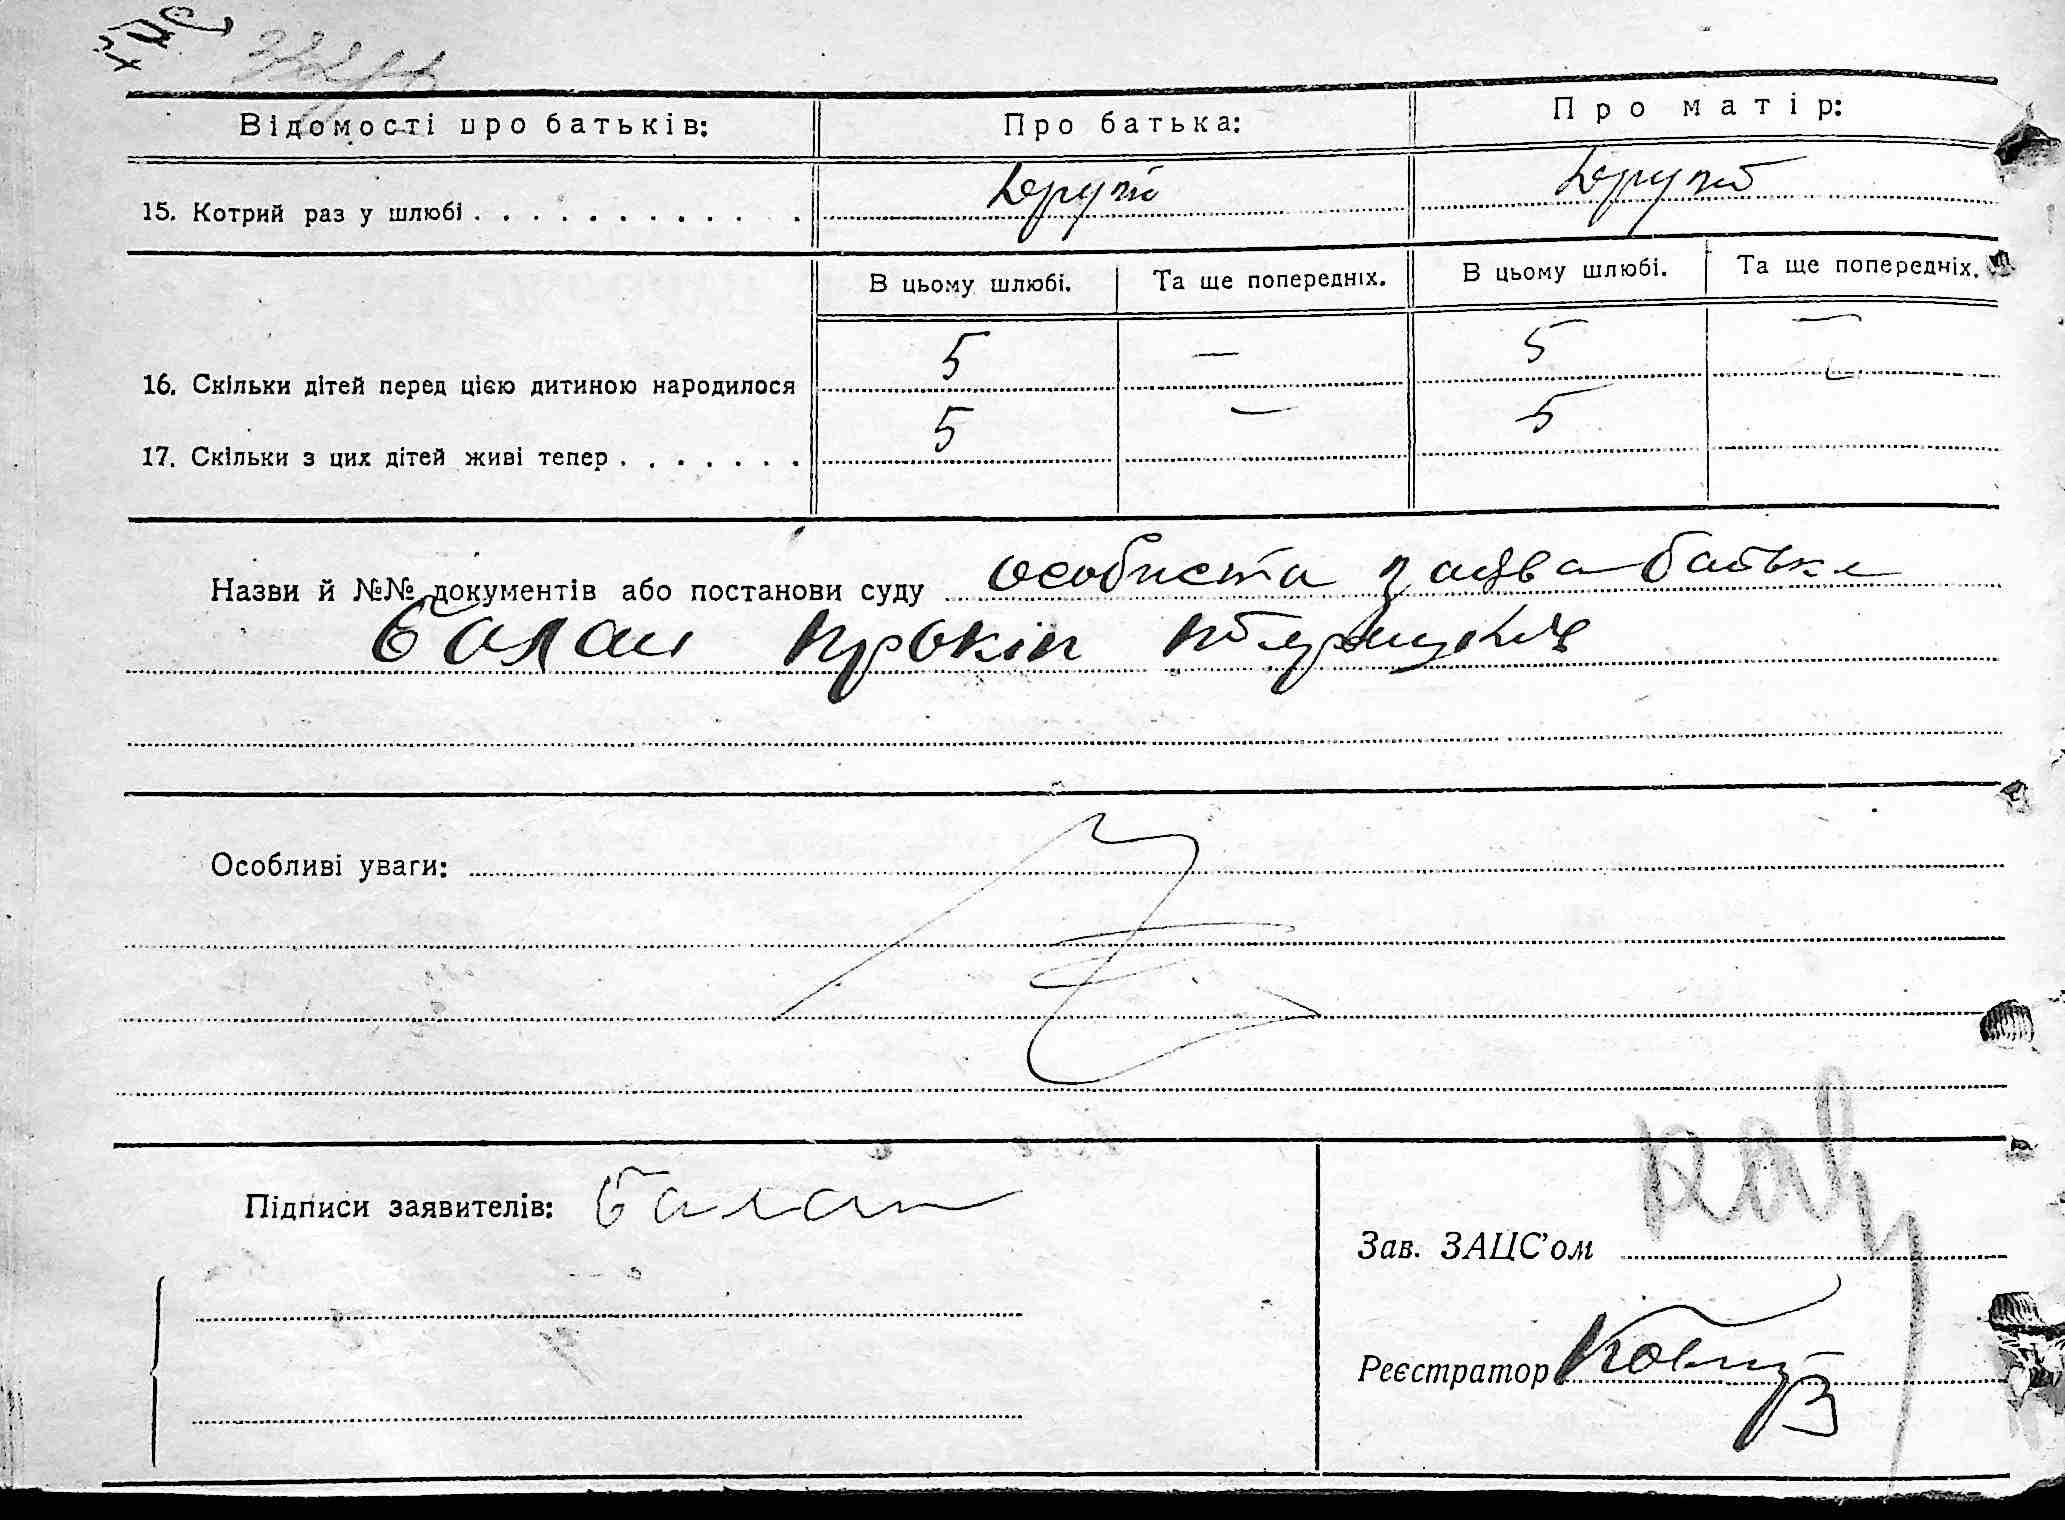 Відомості про батьків: Про батька: Про матір:
15. Котрий раз у шлюбі . . . . . . . . . . . . другий другий
В цьому шлюбі. Та ще попередніх. В цьому шлюбі. Та ще попередніх.
16. Скільки дітей перед цією дитиною народилося 5 — 5 —
17. Скільки з цих дітей живі тепер . . . . . . . 5 — 5
Назви й №№ документів або постанови суду особиста заява батька
Балан Прокіп
Особливі уваги:
Підписи заявителів: Балан
Зав. ЗАЦС'ом
Реєстратор